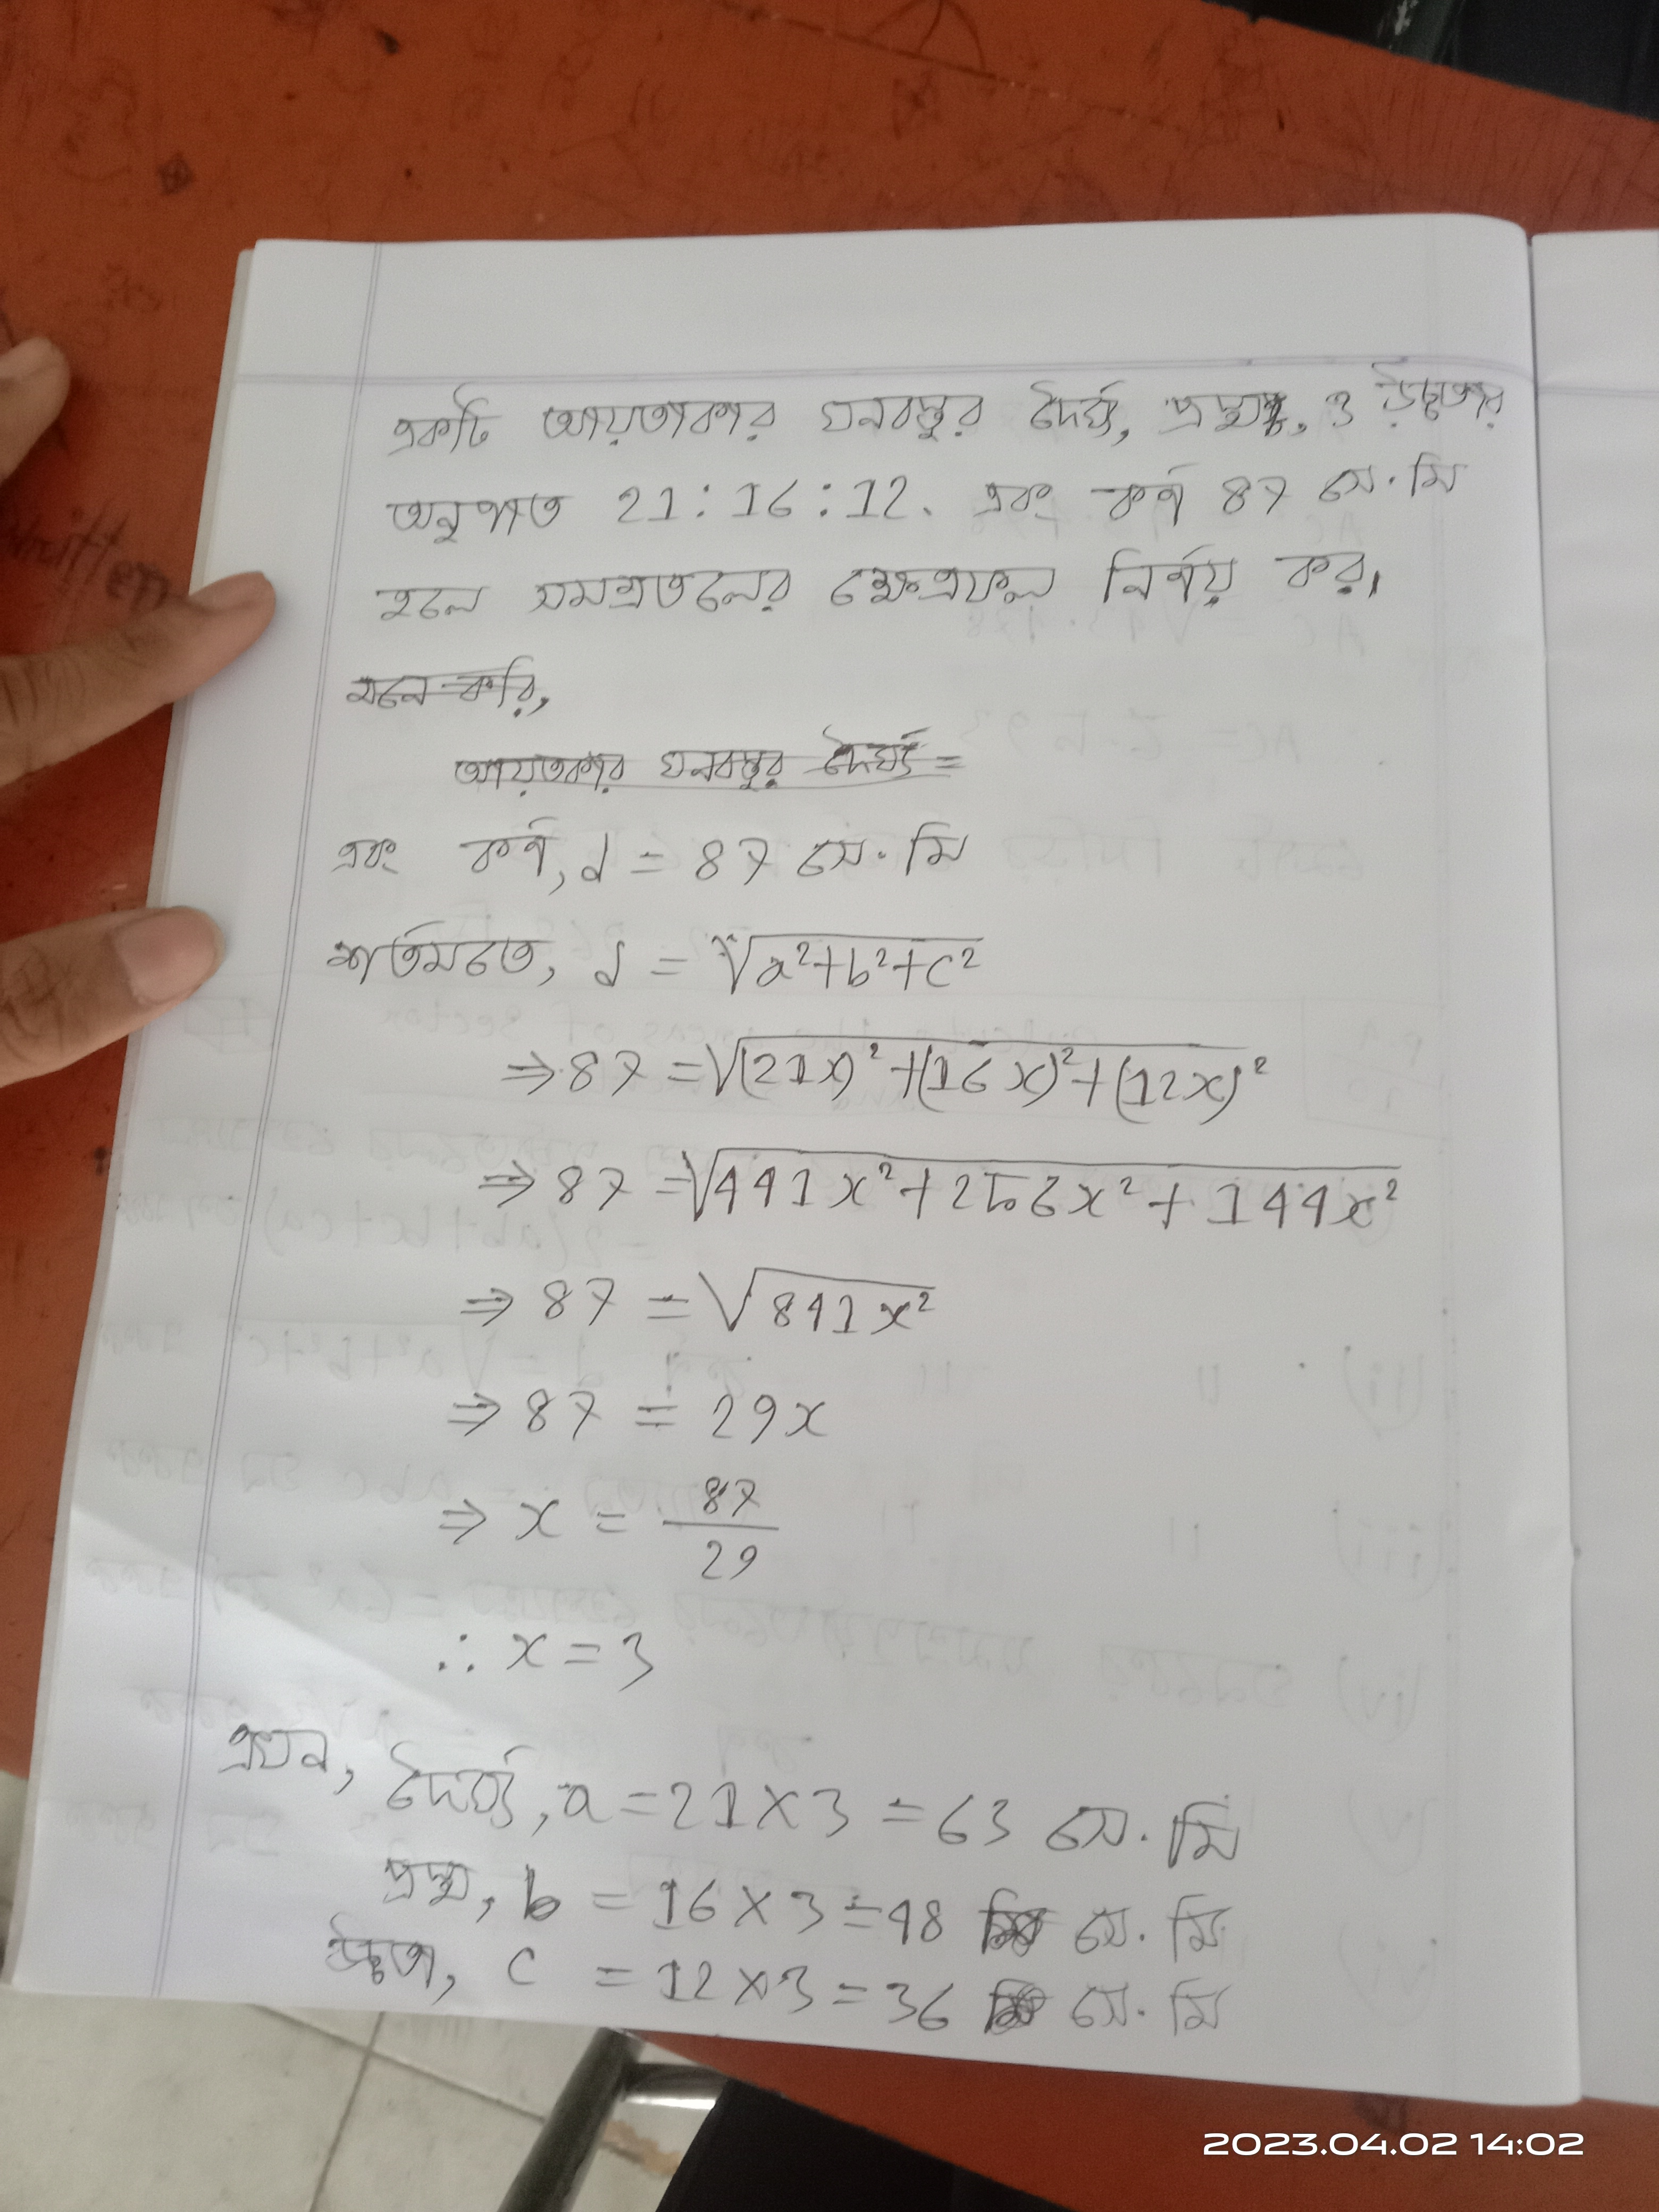 একটি আয়তাকার ঘনবস্তুর দৈর্ঘ্য, প্রস্থ, ও উচ্চতার
অনুপাত 21:16:12. এবং কর্ণ 87 সে.মি
হলে সমগ্রতলের ক্ষেত্রফল নির্ণয় কর।
মনে করি,
আয়তকার ঘনবস্তুর দৈর্ঘ্য =
এবং কর্ণ, d = 87 সে.মি
শর্তমতে, d = √a²+b²+c²
⇒ 87 = √(21x)²+(16x)²+(12x)²
⇒ 87 = √441x²+256x²+144x²
⇒ 87 = √841x²
⇒ 87 = 29x
⇒ x = 87/29
∴ x = 3
এখন, দৈর্ঘ্য, a = 21×3 = 63 সে.মি
প্রস্থ, b = 16×3 = 48 সে.মি
উচ্চতা, c = 12×3 = 36 সে.মি
written
2023.04.02 14:02